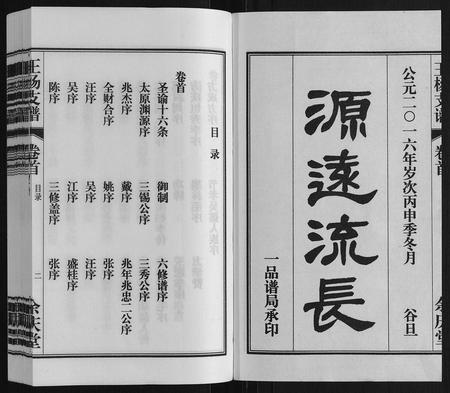 王杨支谱 卷首 余庆堂
公元二〇一六年岁次丙申季冬月 谷旦
源遠流長
一品谱局承印
目录
卷首
圣谕十六条 御制 六修谱序
太原渊源序 三锡公序 三秀公序
兆杰序 戴序 兆年兆忠二公序
全财合序 姚序 张序
汪序 吴序 汪序
吴序 江序 盛桂序
陈序 三修盖序 张序
王杨支谱 卷首 目录 二 余庆堂